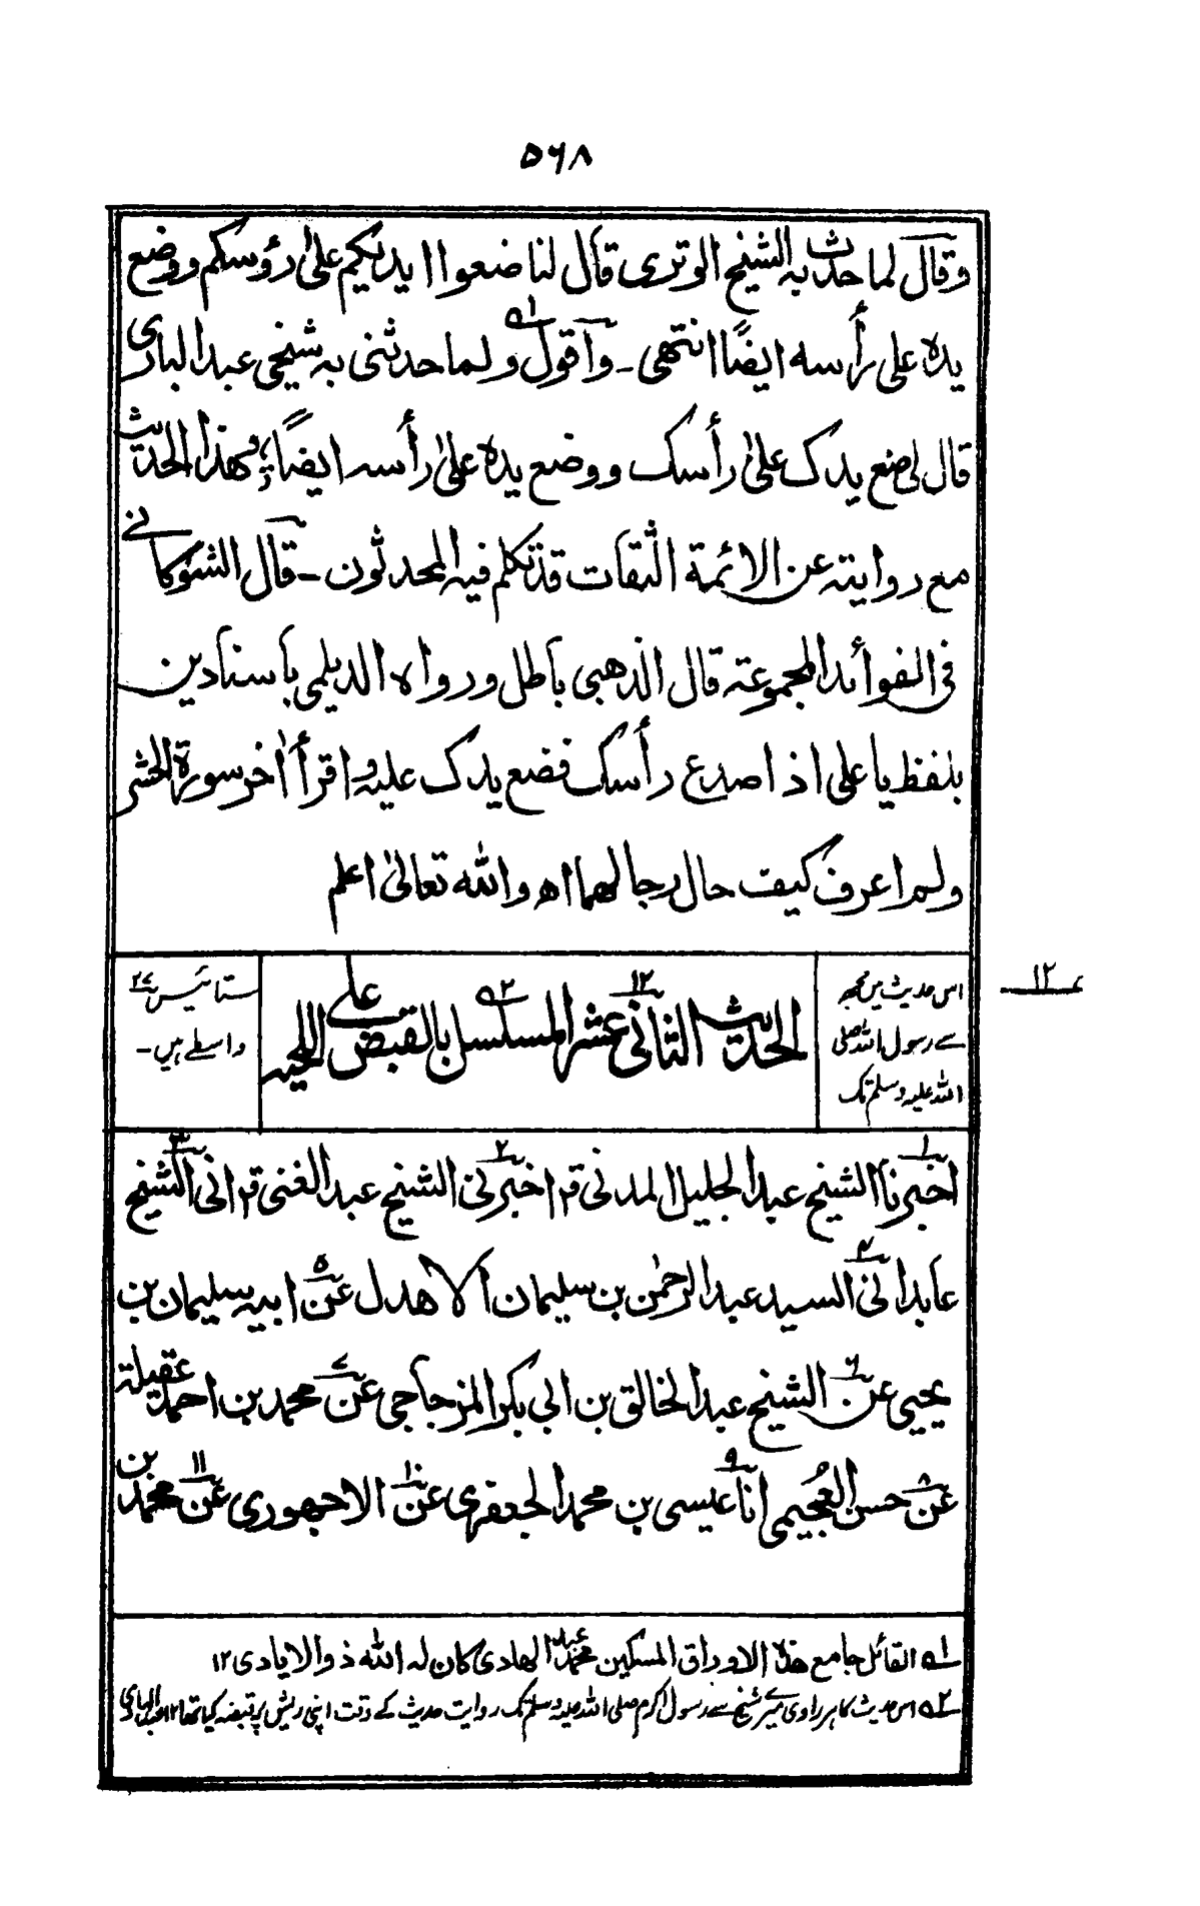 ۵۶۸
وقال لما حدث به الشیخ الوتری قال لنا ضعوا ایدیکم علیٰ رؤسکم ووضع
یده علی رأسه ایضًا انتهی ۔ واقول ولما حدثنی به شیخی عبد الباری
قال لی ضع یدک علیٰ رأسک ووضع یده علیٰ رأسه ایضًا؛ وهذا الحدیث
مع روایته عن الائمة الثقات قد تکلم فیه المحدثون ۔ قال الشوکانے
فی الفوائد المجموعة قال الذهبی باطل ورواه الدیلمی باسنادین
بلفظ یا علی اذا صدع رأسک فضع یدک علیه واقرأ اٰخر سورة الحشر
ولم اعرف کیف حال رجالهما اه والله تعالیٰ اعلم
اس حدیث میں مجھ
سے رسول اللہ صلی
اللہ علیہ وسلم تک
الحدیث الثانی عشر۱۲ المسلسل بالقبض علی اللحیه ۲ه
ستائیس ۲۷
واسطے ہیں۔
۱۲ء
اخبرنا۱ الشیخ عبد الجلیل المدنی قرا اخبرنی۲ الشیخ عبد الغنی قرا انی۳ الشیخ
عابد انی۴ السید عبد الرحمٰن بن سلیمان الاهدل عن۵ ابیه سلیمان بن
یحیی عن۶ الشیخ عبد الخالق بن ابی بکر المزجاجی عن۷ محمد بن احمد عقیلة
عن۸ حسن العجیمی انا۹ عیسی بن محمد الجعفری عن۱۰ الاجهوری عن۱۱ محمد بن
۱ه القائل جامع هذه الاوراق المسکین محمد عبد الهادی کان له الله ذو الایادی ۱۲
۲ه اس حدیث کا ہر راوی میرے شیخ سے رسول اکرم صلی اللہ علیہ وسلم تک روایت حدیث کے وقت اپنی ریش پر قبضہ کیا تھا ۱۲ عبد الهادی